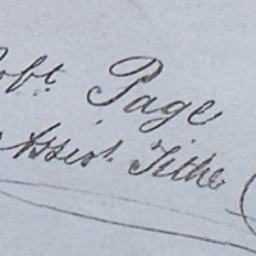 Robt. Page
Assist. Tithe